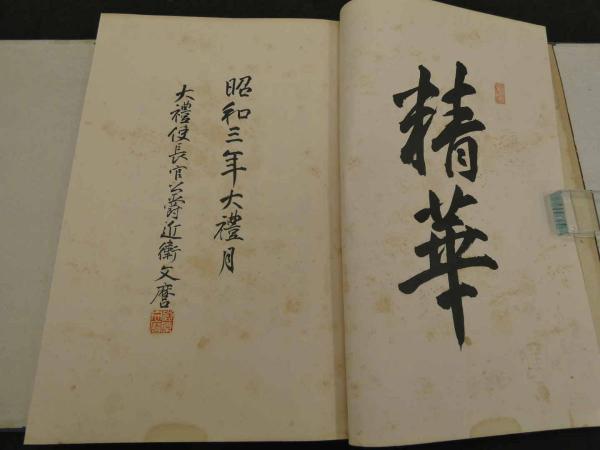 精華
昭和三年大禮月
大禮使長官公爵近衛文麿